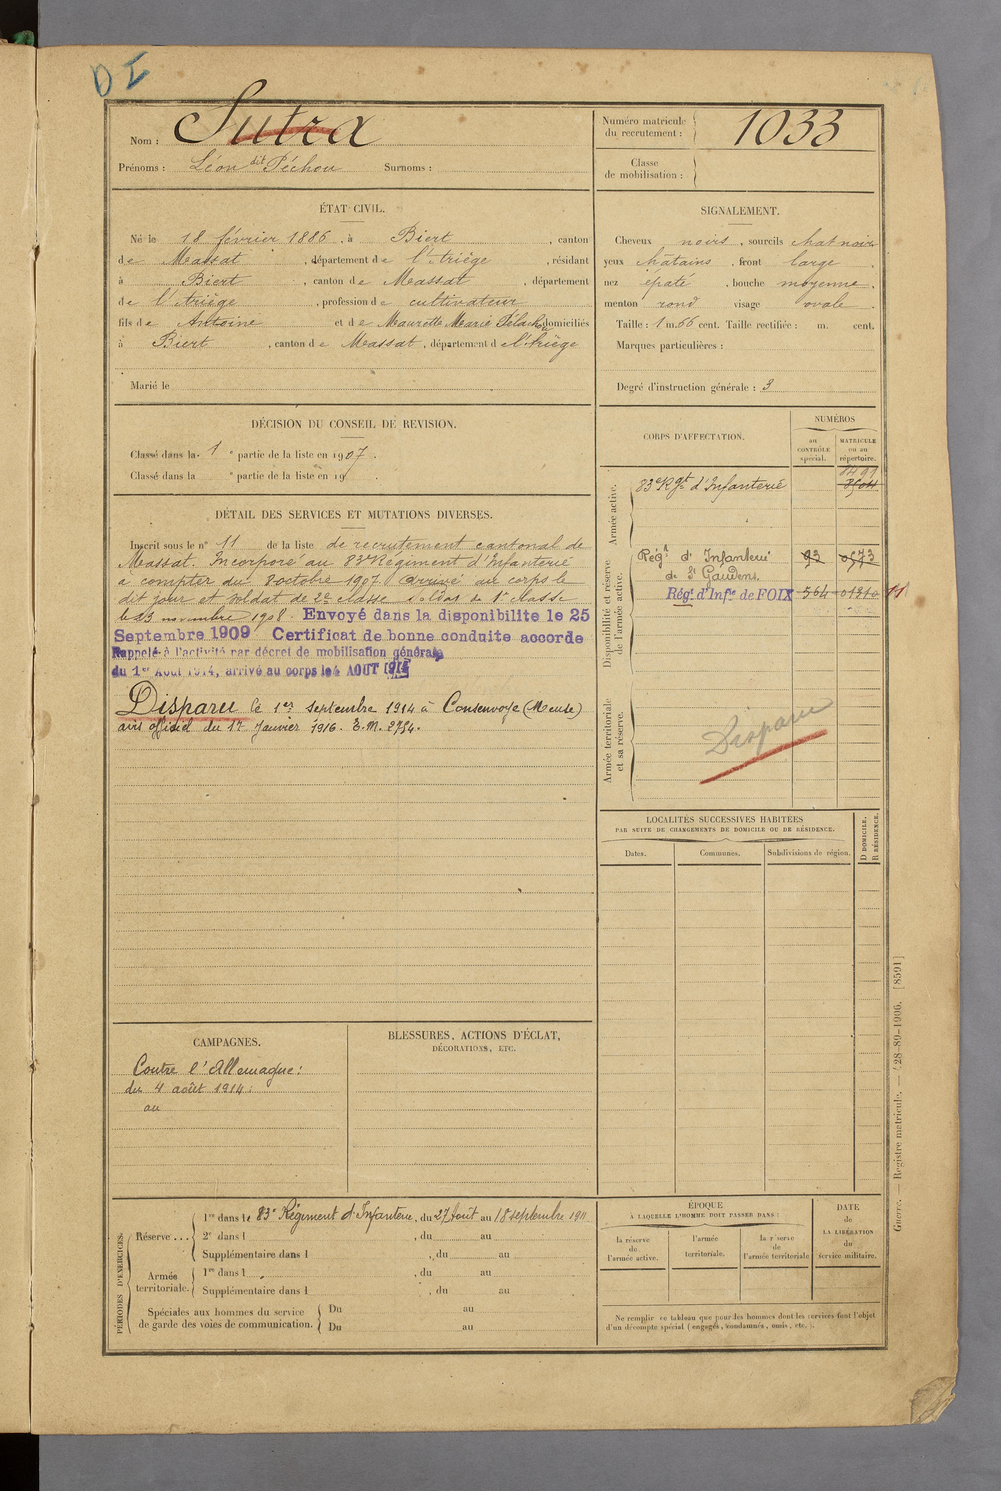 DI
Nom : Sutra
Prénoms : Léon dit Péchou Surnoms :
Numéro matricule du recrutement : 1033
Classe de mobilisation :
ÉTAT CIVIL.
Né le 18 février 1886, à Biert, canton
de Massat, département de l'Ariège, résidant
à Biert, canton de Massat, département
de l'Ariège, profession de cultivateur
fils de Antoine et de Maurette Marie Pélach domiciliés
à Biert, canton de Massat, département de l'Ariège
Marié le
SIGNALEMENT.
Cheveux noirs, sourcils chat noir
yeux châtains, front large
nez épaté, bouche moyenne.
menton rond visage ovale.
Taille : 1 m. 66 cent. Taille rectifiée : m. cent.
Marques particulières :
Degré d'instruction générale : 3
DÉCISION DU CONSEIL DE REVISION.
Classé dans la 1e partie de la liste en 1907.
Classé dans la e partie de la liste en 19 .
DÉTAIL DES SERVICES ET MUTATIONS DIVERSES.
Inscrit sous le n° 11 de la liste de recrutement cantonal de
Massat. Incorporé au 83e Régiment d'Infanterie
à compter du 8 octobre 1907. Arrivé au corps le
dit jour et soldat de 2e classe soldat de 1e classe
le 23 novembre 1908. Envoyé dans la disponibilite le 25
Septembre 1909 Certificat de bonne conduite accorde
Rappelé à l'activité par décret de mobilisation générale
du 1er Aout 1914, arrivé au corps le 4 AOUT 1914
Disparu le 1er septembre 1914 à Consenvoye (Meuse)
avis officiel du 17 Janvier 1916. E.M. 2754.
CORPS D'AFFECTATION.
NUMÉROS
au CONTRÔLE spécial.
MATRICULE ou au répertoire.
Armée active.
83e Rgt d'Infanterie 8499
Disponibilité et réserve de l'armée active.
Régt d'Infanterie 93 0573
de St Gaudens.
Régt d'Infie de FOIX 564 01310 11
Armée territoriale et sa réserve.
Disparu
LOCALITÉS SUCCESSIVES HABITÉES
PAR SUITE DE CHANGEMENTS DE DOMICILE OU DE RÉSIDENCE.
Dates. Communes. Subdivisions de région.
D DOMICILE.
R RÉSIDENCE.
CAMPAGNES.
Contre l'Allemagne :
du 4 août 1914 :
au
BLESSURES, ACTIONS D'ÉCLAT,
DÉCORATIONS, ETC.
PÉRIODES D'EXERCICES.
Réserve ... 1re dans le 83e Régiment d'Infanterie, du 27 Août au 18 septembre 1911
2e dans l , du au
Supplémentaire dans l , du au
Armée territoriale. 1re dans l , du au
Supplémentaire dans l , du au
Spéciales aux hommes du service Du au
de garde des voies de communication. Du au
ÉPOQUE
À LAQUELLE L'HOMME DOIT PASSER DANS :
la réserve de l'armée active.
l'armée territoriale.
la réserve de l'armée territoriale
DATE
de
LA LIBÉRATION
du
service militaire.
Ne remplir ce tableau que pour des hommes dont les services font l'objet
d'un décompte spécial (engagés, condamnés, omis, etc.).
Guerre. — Registre matricule. — (28-89-1906. [8591]